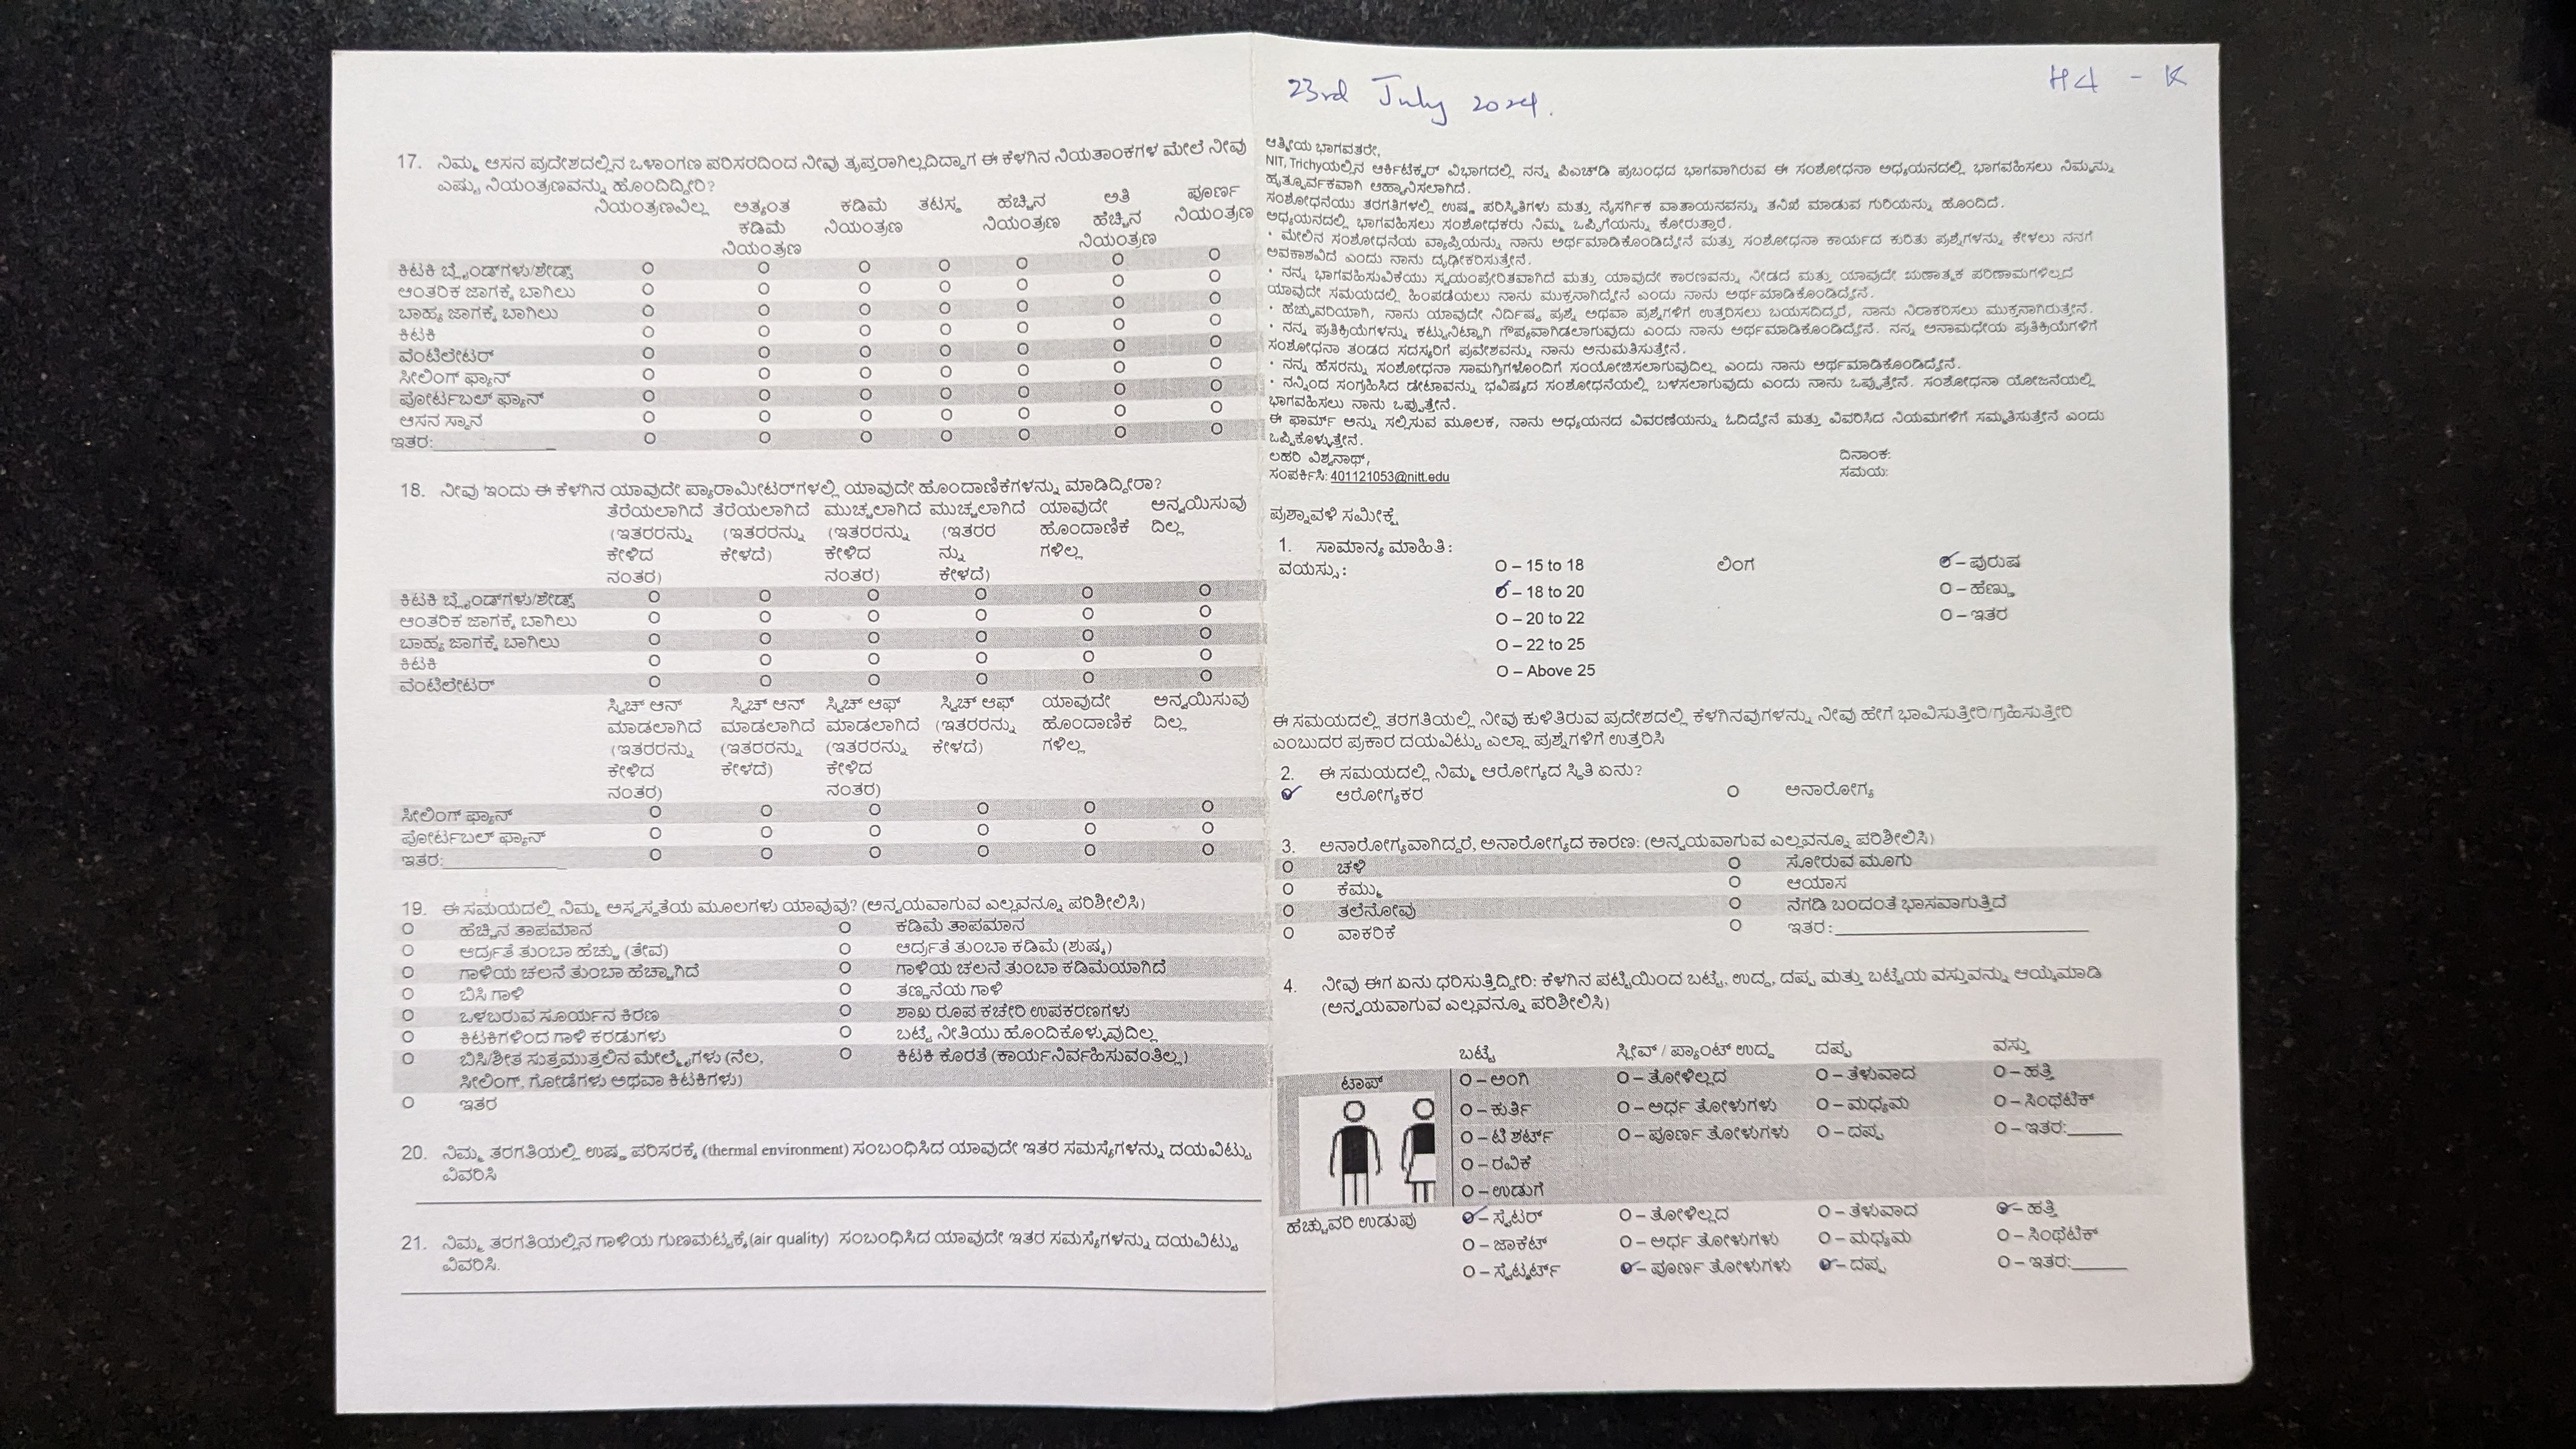 17. ನಿಮ್ಮ ಆಸನ ಪ್ರದೇಶದಲ್ಲಿನ ಒಳಾಂಗಣ ಪರಿಸರದಿಂದ ನೀವು ತೃಪ್ತರಾಗಿಲ್ಲದಿದ್ದಾಗ ಈ ಕೆಳಗಿನ ನಿಯತಾಂಕಗಳ ಮೇಲೆ ನೀವು
ಎಷ್ಟು ನಿಯಂತ್ರಣವನ್ನು ಹೊಂದಿದ್ದೀರಿ?
ನಿಯಂತ್ರಣವಿಲ್ಲ ಅತ್ಯಂತ ಕಡಿಮೆ ನಿಯಂತ್ರಣ ಕಡಿಮೆ ನಿಯಂತ್ರಣ ತಟಸ್ಥ ಹೆಚ್ಚಿನ ನಿಯಂತ್ರಣ ಅತಿ ಹೆಚ್ಚಿನ ನಿಯಂತ್ರಣ ಪೂರ್ಣ ನಿಯಂತ್ರಣ
ಕಿಟಕಿ ಬ್ಲೈಂಡ್‌ಗಳು/ಶೇಡ್ಸ್ O O O O O O O
ಆಂತರಿಕ ಜಾಗಕ್ಕೆ ಬಾಗಿಲು O O O O O O O
ಬಾಹ್ಯ ಜಾಗಕ್ಕೆ ಬಾಗಿಲು O O O O O O O
ಕಿಟಕಿ O O O O O O O
ವೆಂಟಿಲೇಟರ್ O O O O O O O
ಸೀಲಿಂಗ್ ಫ್ಯಾನ್ O O O O O O O
ಪೋರ್ಟಬಲ್ ಫ್ಯಾನ್ O O O O O O O
ಆಸನ ಸ್ಥಾನ O O O O O O O
ಇತರ:____________ O O O O O O O
18. ನೀವು ಇಂದು ಈ ಕೆಳಗಿನ ಯಾವುದೇ ಪ್ಯಾರಾಮೀಟರ್‌ಗಳಲ್ಲಿ ಯಾವುದೇ ಹೊಂದಾಣಿಕೆಗಳನ್ನು ಮಾಡಿದ್ದೀರಾ?
ತೆರೆಯಲಾಗಿದೆ ತೆರೆಯಲಾಗಿದೆ ಮುಚ್ಚಲಾಗಿದೆ ಮುಚ್ಚಲಾಗಿದೆ ಯಾವುದೇ ಅನ್ವಯಿಸುವು
(ಇತರರನ್ನು (ಇತರರನ್ನು (ಇತರರನ್ನು (ಇತರರ ಹೊಂದಾಣಿಕೆ ದಿಲ್ಲ
ಕೇಳಿದ ಕೇಳದೆ) ಕೇಳಿದ ನ್ನು ಗಳಿಲ್ಲ
ನಂತರ) ನಂತರ) ಕೇಳದೆ)
ಕಿಟಕಿ ಬ್ಲೈಂಡ್‌ಗಳು/ಶೇಡ್ಸ್ O O O O O O
ಆಂತರಿಕ ಜಾಗಕ್ಕೆ ಬಾಗಿಲು O O O O O O
ಬಾಹ್ಯ ಜಾಗಕ್ಕೆ ಬಾಗಿಲು O O O O O O
ಕಿಟಕಿ O O O O O O
ವೆಂಟಿಲೇಟರ್ O O O O O O
ಸ್ವಿಚ್ ಆನ್ ಸ್ವಿಚ್ ಆನ್ ಸ್ವಿಚ್ ಆಫ್ ಸ್ವಿಚ್ ಆಫ್ ಯಾವುದೇ ಅನ್ವಯಿಸುವು
ಮಾಡಲಾಗಿದೆ ಮಾಡಲಾಗಿದೆ ಮಾಡಲಾಗಿದೆ (ಇತರರನ್ನು ಹೊಂದಾಣಿಕೆ ದಿಲ್ಲ
(ಇತರರನ್ನು (ಇತರರನ್ನು (ಇತರರನ್ನು ಕೇಳದೆ) ಗಳಿಲ್ಲ
ಕೇಳಿದ ಕೇಳದೆ) ಕೇಳಿದ
ನಂತರ) ನಂತರ)
ಸೀಲಿಂಗ್ ಫ್ಯಾನ್ O O O O O O
ಪೋರ್ಟಬಲ್ ಫ್ಯಾನ್ O O O O O O
ಇತರ:____________ O O O O O O
19. ಈ ಸಮಯದಲ್ಲಿ ನಿಮ್ಮ ಅಸ್ವಸ್ಥತೆಯ ಮೂಲಗಳು ಯಾವುವು? (ಅನ್ವಯವಾಗುವ ಎಲ್ಲವನ್ನೂ ಪರಿಶೀಲಿಸಿ)
O ಹೆಚ್ಚಿನ ತಾಪಮಾನ O ಕಡಿಮೆ ತಾಪಮಾನ
O ಆರ್ದ್ರತೆ ತುಂಬಾ ಹೆಚ್ಚು (ತೇವ) O ಆರ್ದ್ರತೆ ತುಂಬಾ ಕಡಿಮೆ (ಶುಷ್ಕ)
O ಗಾಳಿಯ ಚಲನೆ ತುಂಬಾ ಹೆಚ್ಚಾಗಿದೆ O ಗಾಳಿಯ ಚಲನೆ ತುಂಬಾ ಕಡಿಮೆಯಾಗಿದೆ
O ಬಿಸಿ ಗಾಳಿ O ತಣ್ಣನೆಯ ಗಾಳಿ
O ಒಳಬರುವ ಸೂರ್ಯನ ಕಿರಣ O ಶಾಖ ರೂಪ ಕಚೇರಿ ಉಪಕರಣಗಳು
O ಕಿಟಕಿಗಳಿಂದ ಗಾಳಿ ಕರಡುಗಳು O ಬಟ್ಟೆ ನೀತಿಯು ಹೊಂದಿಕೊಳ್ಳುವುದಿಲ್ಲ
O ಬಿಸಿ/ಶೀತ ಸುತ್ತಮುತ್ತಲಿನ ಮೇಲ್ಮೈಗಳು (ನೆಲ, O ಕಿಟಕಿ ಕೊರತೆ (ಕಾರ್ಯನಿರ್ವಹಿಸುವಂತಿಲ್ಲ)
ಸೀಲಿಂಗ್, ಗೋಡೆಗಳು ಅಥವಾ ಕಿಟಕಿಗಳು)
O ಇತರ
20. ನಿಮ್ಮ ತರಗತಿಯಲ್ಲಿ ಉಷ್ಣ ಪರಿಸರಕ್ಕೆ (thermal environment) ಸಂಬಂಧಿಸಿದ ಯಾವುದೇ ಇತರ ಸಮಸ್ಯೆಗಳನ್ನು ದಯವಿಟ್ಟು
ವಿವರಿಸಿ
21. ನಿಮ್ಮ ತರಗತಿಯಲ್ಲಿನ ಗಾಳಿಯ ಗುಣಮಟ್ಟಕ್ಕೆ(air quality) ಸಂಬಂಧಿಸಿದ ಯಾವುದೇ ಇತರ ಸಮಸ್ಯೆಗಳನ್ನು ದಯವಿಟ್ಟು
ವಿವರಿಸಿ.
23rd July 2024.
H4 - K
ಆತ್ಮೀಯ ಭಾಗವತರೇ,
NIT, Trichyಯಲ್ಲಿನ ಆರ್ಕಿಟೆಕ್ಚರ್ ವಿಭಾಗದಲ್ಲಿ ನನ್ನ ಪಿಎಚ್‌ಡಿ ಪ್ರಬಂಧದ ಭಾಗವಾಗಿರುವ ಈ ಸಂಶೋಧನಾ ಅಧ್ಯಯನದಲ್ಲಿ ಭಾಗವಹಿಸಲು ನಿಮ್ಮನ್ನು
ಹೃತ್ಪೂರ್ವಕವಾಗಿ ಆಹ್ವಾನಿಸಲಾಗಿದೆ.
ಸಂಶೋಧನೆಯು ತರಗತಿಗಳಲ್ಲಿ ಉಷ್ಣ ಪರಿಸ್ಥಿತಿಗಳು ಮತ್ತು ನೈಸರ್ಗಿಕ ವಾತಾಯನವನ್ನು ತನಿಖೆ ಮಾಡುವ ಗುರಿಯನ್ನು ಹೊಂದಿದೆ.
ಅಧ್ಯಯನದಲ್ಲಿ ಭಾಗವಹಿಸಲು ಸಂಶೋಧಕರು ನಿಮ್ಮ ಒಪ್ಪಿಗೆಯನ್ನು ಕೋರುತ್ತಾರೆ.
• ಮೇಲಿನ ಸಂಶೋಧನೆಯ ವ್ಯಾಪ್ತಿಯನ್ನು ನಾನು ಅರ್ಥಮಾಡಿಕೊಂಡಿದ್ದೇನೆ ಮತ್ತು ಸಂಶೋಧನಾ ಕಾರ್ಯದ ಕುರಿತು ಪ್ರಶ್ನೆಗಳನ್ನು ಕೇಳಲು ನನಗೆ
ಅವಕಾಶವಿದೆ ಎಂದು ನಾನು ದೃಢೀಕರಿಸುತ್ತೇನೆ.
• ನನ್ನ ಭಾಗವಹಿಸುವಿಕೆಯು ಸ್ವಯಂಪ್ರೇರಿತವಾಗಿದೆ ಮತ್ತು ಯಾವುದೇ ಕಾರಣವನ್ನು ನೀಡದೆ ಮತ್ತು ಯಾವುದೇ ಋಣಾತ್ಮಕ ಪರಿಣಾಮಗಳಿಲ್ಲದೆ
ಯಾವುದೇ ಸಮಯದಲ್ಲಿ ಹಿಂಪಡೆಯಲು ನಾನು ಮುಕ್ತನಾಗಿದ್ದೇನೆ ಎಂದು ನಾನು ಅರ್ಥಮಾಡಿಕೊಂಡಿದ್ದೇನೆ.
• ಹೆಚ್ಚುವರಿಯಾಗಿ, ನಾನು ಯಾವುದೇ ನಿರ್ದಿಷ್ಟ ಪ್ರಶ್ನೆ ಅಥವಾ ಪ್ರಶ್ನೆಗಳಿಗೆ ಉತ್ತರಿಸಲು ಬಯಸದಿದ್ದರೆ, ನಾನು ನಿರಾಕರಿಸಲು ಮುಕ್ತನಾಗಿರುತ್ತೇನೆ.
• ನನ್ನ ಪ್ರತಿಕ್ರಿಯೆಗಳನ್ನು ಕಟ್ಟುನಿಟ್ಟಾಗಿ ಗೌಪ್ಯವಾಗಿಡಲಾಗುವುದು ಎಂದು ನಾನು ಅರ್ಥಮಾಡಿಕೊಂಡಿದ್ದೇನೆ. ನನ್ನ ಅನಾಮಧೇಯ ಪ್ರತಿಕ್ರಿಯೆಗಳಿಗೆ
ಸಂಶೋಧನಾ ತಂಡದ ಸದಸ್ಯರಿಗೆ ಪ್ರವೇಶವನ್ನು ನಾನು ಅನುಮತಿಸುತ್ತೇನೆ.
• ನನ್ನ ಹೆಸರನ್ನು ಸಂಶೋಧನಾ ಸಾಮಗ್ರಿಗಳೊಂದಿಗೆ ಸಂಯೋಜಿಸಲಾಗುವುದಿಲ್ಲ ಎಂದು ನಾನು ಅರ್ಥಮಾಡಿಕೊಂಡಿದ್ದೇನೆ.
• ನನ್ನಿಂದ ಸಂಗ್ರಹಿಸಿದ ಡೇಟಾವನ್ನು ಭವಿಷ್ಯದ ಸಂಶೋಧನೆಯಲ್ಲಿ ಬಳಸಲಾಗುವುದು ಎಂದು ನಾನು ಒಪ್ಪುತ್ತೇನೆ. ಸಂಶೋಧನಾ ಯೋಜನೆಯಲ್ಲಿ
ಭಾಗವಹಿಸಲು ನಾನು ಒಪ್ಪುತ್ತೇನೆ.
ಈ ಫಾರ್ಮ್ ಅನ್ನು ಸಲ್ಲಿಸುವ ಮೂಲಕ, ನಾನು ಅಧ್ಯಯನದ ವಿವರಣೆಯನ್ನು ಓದಿದ್ದೇನೆ ಮತ್ತು ವಿವರಿಸಿದ ನಿಯಮಗಳಿಗೆ ಸಮ್ಮತಿಸುತ್ತೇನೆ ಎಂದು
ಒಪ್ಪಿಕೊಳ್ಳುತ್ತೇನೆ.
ಲಹರಿ ವಿಶ್ವನಾಥ್, ದಿನಾಂಕ:
ಸಂಪರ್ಕಿಸಿ: 401121053@nitt.edu ಸಮಯ:
ಪ್ರಶ್ನಾವಳಿ ಸಮೀಕ್ಷೆ
1. ಸಾಮಾನ್ಯ ಮಾಹಿತಿ:
ವಯಸ್ಸು: O – 15 to 18 ಲಿಂಗ O – ಪುರುಷ
O – 18 to 20 O – ಹೆಣ್ಣು
O – 20 to 22 O – ಇತರ
O – 22 to 25
O – Above 25
ಈ ಸಮಯದಲ್ಲಿ ತರಗತಿಯಲ್ಲಿ ನೀವು ಕುಳಿತಿರುವ ಪ್ರದೇಶದಲ್ಲಿ ಕೆಳಗಿನವುಗಳನ್ನು ನೀವು ಹೇಗೆ ಭಾವಿಸುತ್ತೀರಿ/ಗ್ರಹಿಸುತ್ತೀರಿ
ಎಂಬುದರ ಪ್ರಕಾರ ದಯವಿಟ್ಟು ಎಲ್ಲಾ ಪ್ರಶ್ನೆಗಳಿಗೆ ಉತ್ತರಿಸಿ
2. ಈ ಸಮಯದಲ್ಲಿ ನಿಮ್ಮ ಆರೋಗ್ಯದ ಸ್ಥಿತಿ ಏನು?
O ಆರೋಗ್ಯಕರ O ಅನಾರೋಗ್ಯ
3. ಅನಾರೋಗ್ಯವಾಗಿದ್ದರೆ, ಅನಾರೋಗ್ಯದ ಕಾರಣ: (ಅನ್ವಯವಾಗುವ ಎಲ್ಲವನ್ನೂ ಪರಿಶೀಲಿಸಿ)
O ಚಳಿ O ಸೋರುವ ಮೂಗು
O ಕೆಮ್ಮು O ಆಯಾಸ
O ತಲೆನೋವು O ನೆಗಡಿ ಬಂದಂತೆ ಭಾಸವಾಗುತ್ತಿದೆ
O ವಾಕರಿಕೆ O ಇತರ:____________
4. ನೀವು ಈಗ ಏನು ಧರಿಸುತ್ತಿದ್ದೀರಿ: ಕೆಳಗಿನ ಪಟ್ಟಿಯಿಂದ ಬಟ್ಟೆ, ಉದ್ದ, ದಪ್ಪ ಮತ್ತು ಬಟ್ಟೆಯ ವಸ್ತುವನ್ನು ಆಯ್ಕೆಮಾಡಿ
(ಅನ್ವಯವಾಗುವ ಎಲ್ಲವನ್ನೂ ಪರಿಶೀಲಿಸಿ)
ಬಟ್ಟೆ ಸ್ಲೀವ್ / ಪ್ಯಾಂಟ್ ಉದ್ದ ದಪ್ಪ ವಸ್ತು
ಟಾಪ್ O – ಅಂಗಿ O – ತೋಳಿಲ್ಲದ O – ತೆಳುವಾದ O – ಹತ್ತಿ
O – ಕುರ್ತಿ O – ಅರ್ಧ ತೋಳುಗಳು O – ಮಧ್ಯಮ O – ಸಿಂಥೆಟಿಕ್
O – ಟಿ ಶರ್ಟ್ O – ಪೂರ್ಣ ತೋಳುಗಳು O – ದಪ್ಪ O – ಇತರ:______
O – ರವಿಕೆ
O – ಉಡುಗೆ
ಹೆಚ್ಚುವರಿ ಉಡುಪು O – ಸ್ವೆಟರ್ O – ತೋಳಿಲ್ಲದ O – ತೆಳುವಾದ O – ಹತ್ತಿ
O – ಜಾಕೆಟ್ O – ಅರ್ಧ ತೋಳುಗಳು O – ಮಧ್ಯಮ O – ಸಿಂಥೆಟಿಕ್
O – ಸ್ವೆಟ್ಶರ್ಟ್ O – ಪೂರ್ಣ ತೋಳುಗಳು O – ದಪ್ಪ O – ಇತರ:______